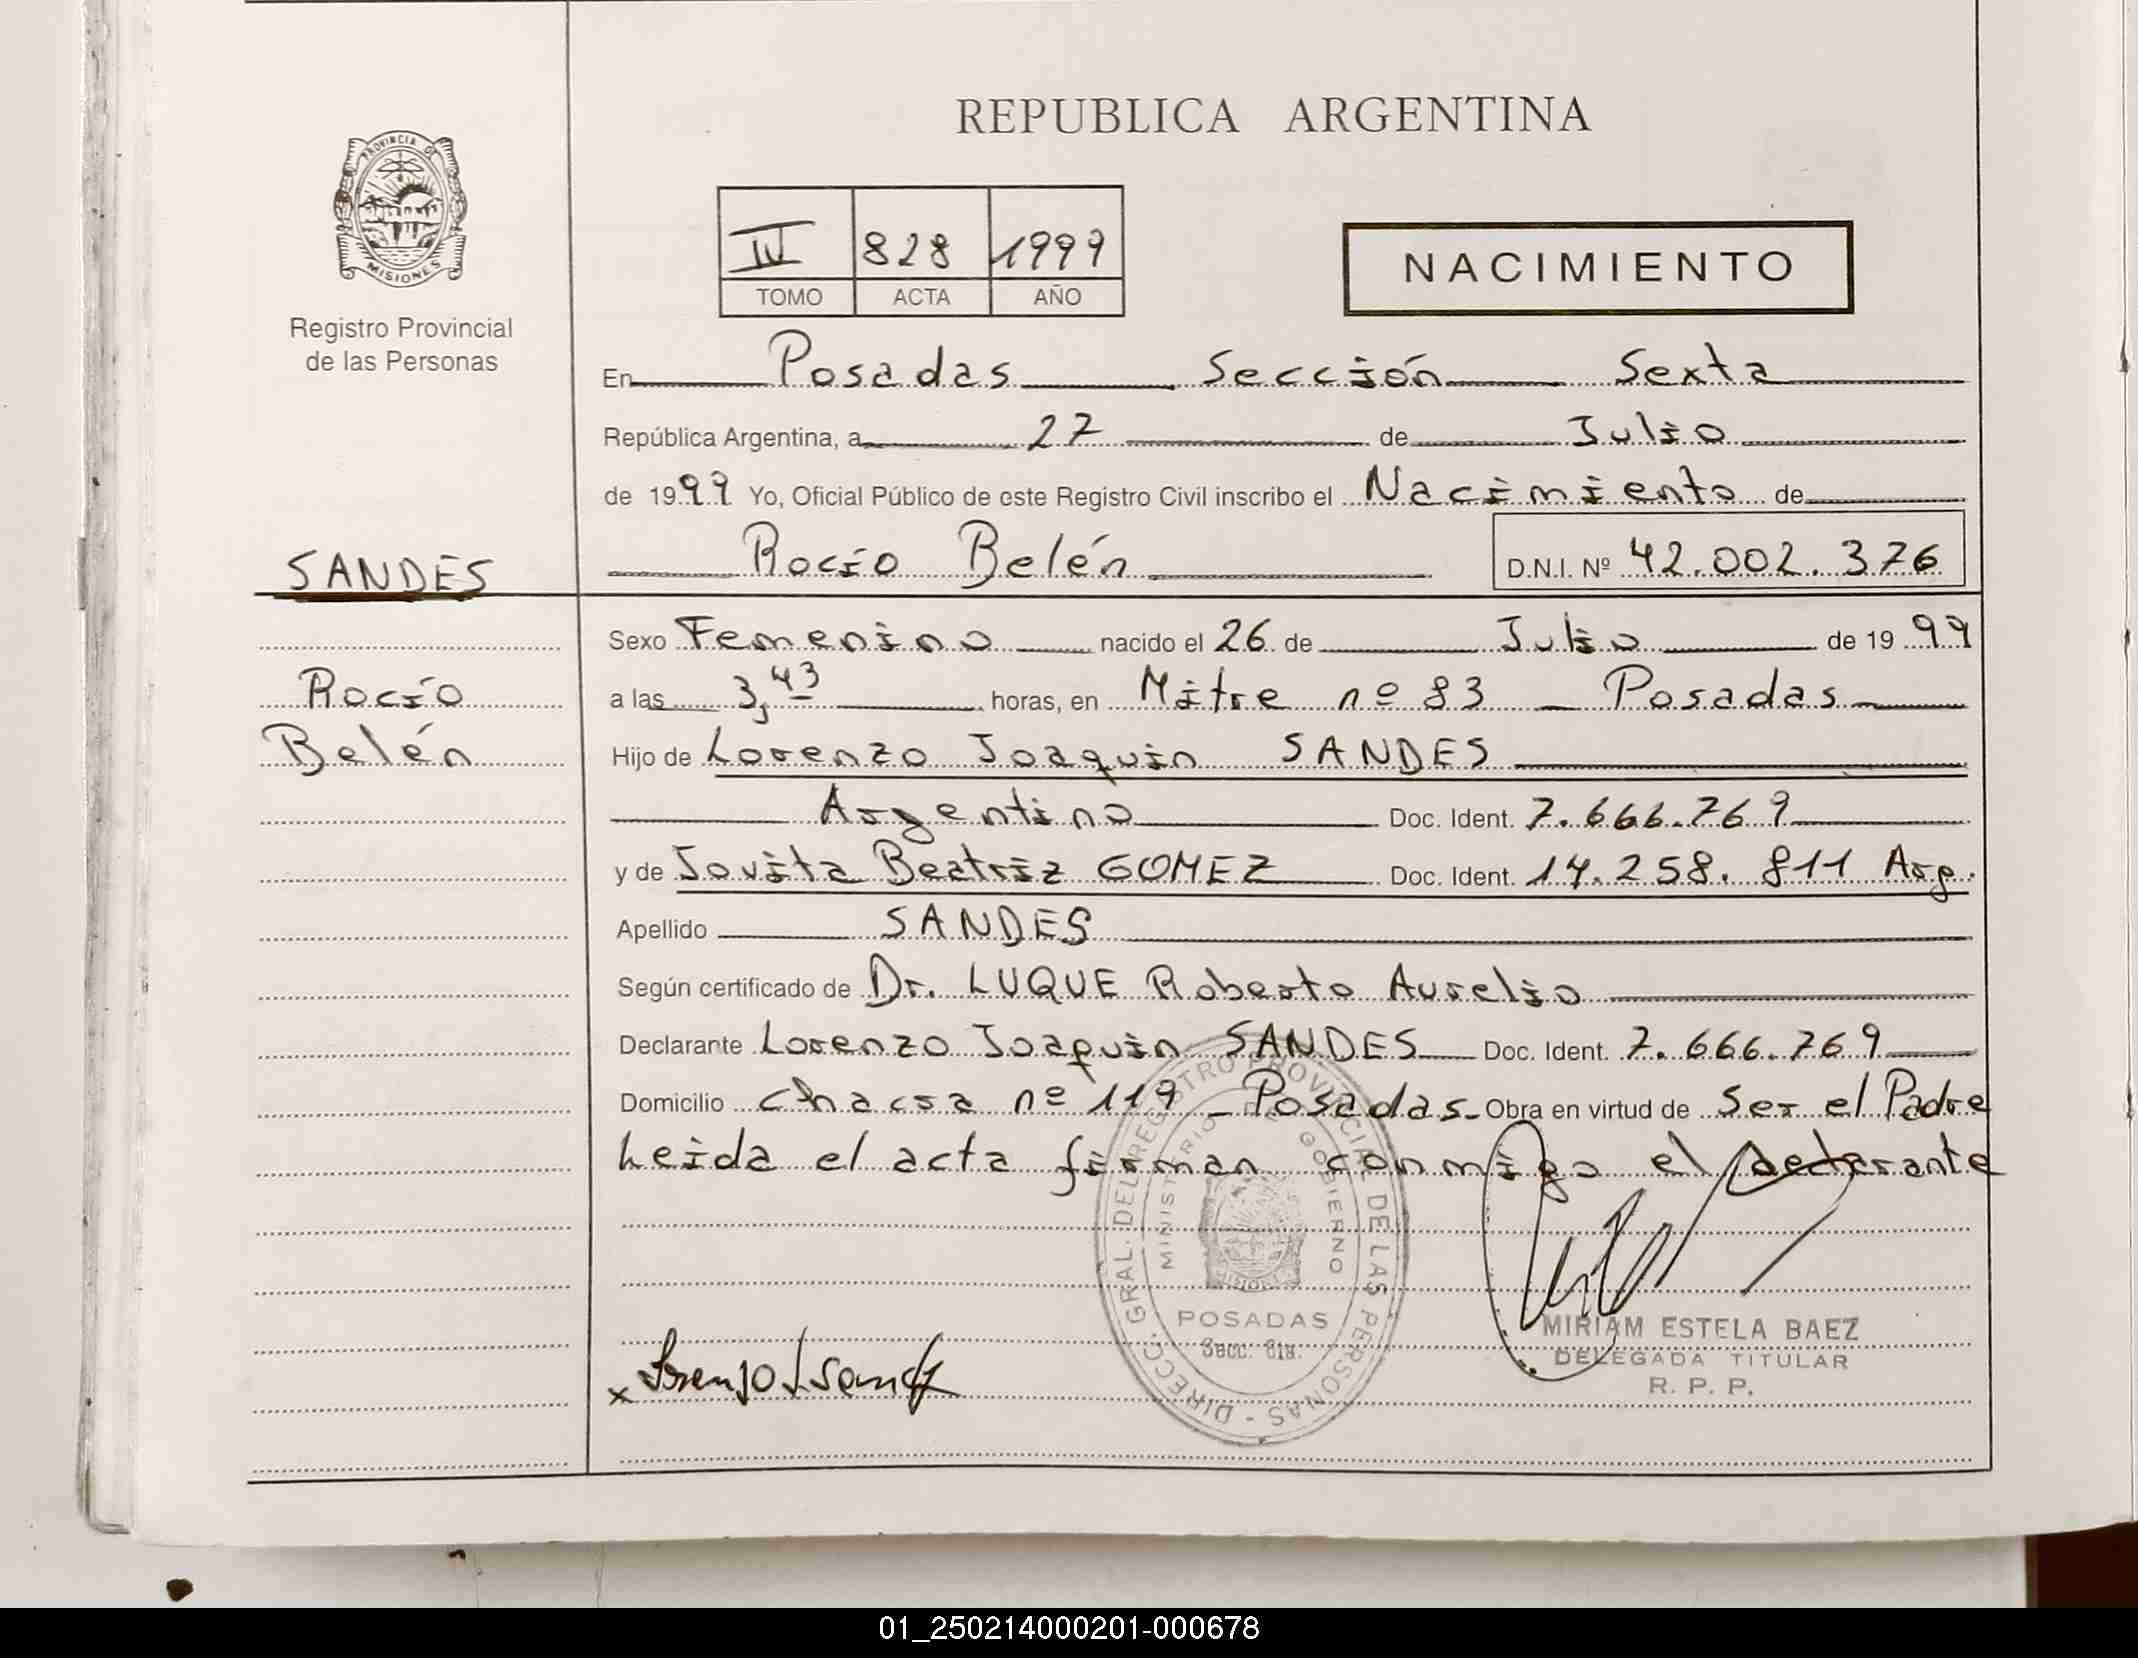 REPUBLICA ARGENTINA
PROVINCIA DE
MISIONES
Registro Provincial
de las Personas
IV 828 1999
TOMO ACTA AÑO
NACIMIENTO
En Posadas Sección Sexta
República Argentina, a 27 de Julio
de 1999 Yo, Oficial Público de este Registro Civil inscribo el Nacimiento de
SANDES
Rocío Belén D.N.I. Nº 42.002.376
Rocío
Belén
Sexo Femenino nacido el 26 de Julio de 1999
a las 3,43 horas, en Mitre nº 83 _ Posadas
Hijo de Lorenzo Joaquin SANDES
Argentino Doc. Ident. 7.666.769
y de Jovita Beatriz GOMEZ Doc. Ident. 14.258.811 Arg.
Apellido SANDES
Según certificado de Dr. LUQUE Roberto Aurelio
Declarante Lorenzo Joaquin SANDES Doc. Ident. 7.666.769
Domicilio Chacra nº 119 _ Posadas - Obra en virtud de Ser el Padre
Leida el acta firman conmigo el declarante
DIRECC. GRAL. DEL REGISTRO PROVINCIAL DE LAS PERSONAS -
MINISTERIO DE GOBIERNO
POSADAS
Secc. 6ta.
MIRIAM ESTELA BAEZ
DELEGADA TITULAR
R. P. P.
x Lorenzo J Sandes
01_250214000201-000678